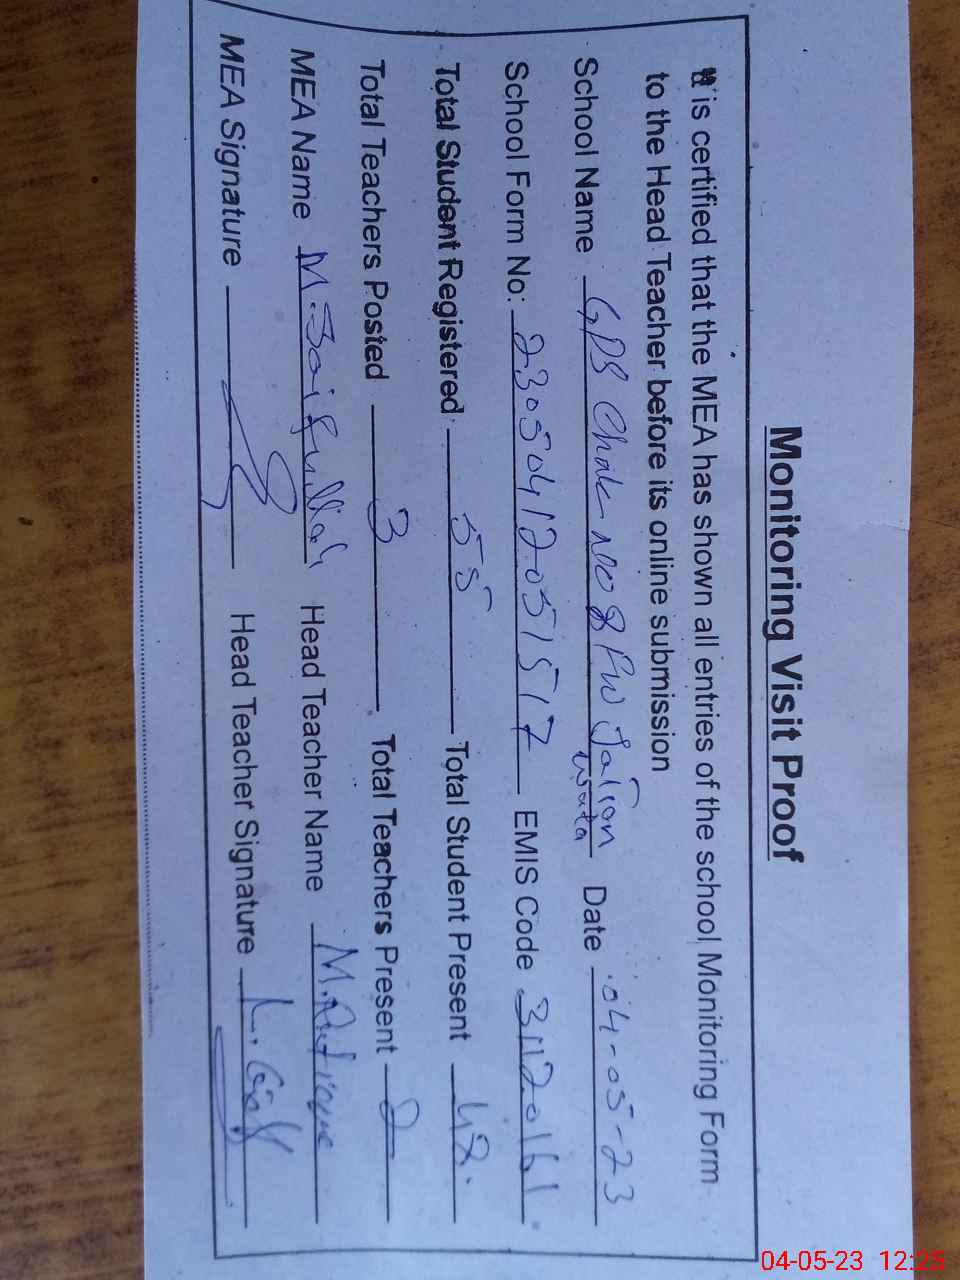 Monitoring Visit Proof
It is certified that the MEA has shown all entries of the school Monitoring Form
to the Head Teacher before its online submission
School Name GPS Chak No 8 Date 04-05-23
Wata
School Form No: 23050412051517 EMIS Code 31120161
Total Student Registered: 55 Total Student Present 48.
Total Teachers Posted 3 Total Teachers Present 2
MEA Name M. Saifullah Head Teacher Name M.
MEA Signature Head Teacher Signature
04-05-23 12:25